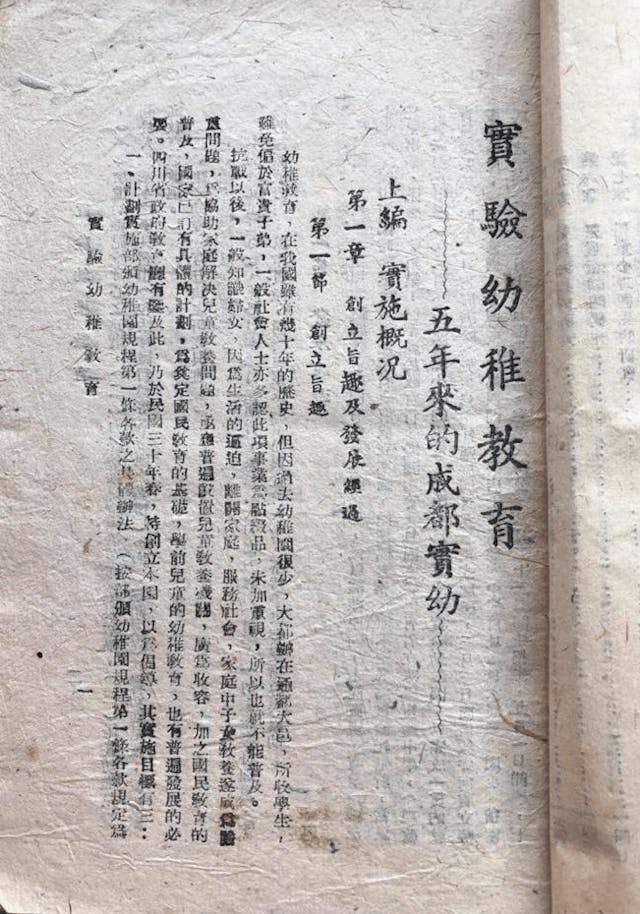 實驗幼稚教育
五年來的成都實幼
上編 實施概况
第一章 創立旨趣及發展經過
第一節 創立旨趣
幼稚教育,在我國雖有幾十年的歷史,但因過去幼稚園很少,大都辦在通都大邑,所收學生,
難免偏於富貴子弟,一般社會人士亦多認此項事業為點綴品,未加重視,所以也就不能普及。
抗戰以後,一般知識婦女,因為生活的逼迫,離開家庭,服務社會,家庭中子女教養遂成為嚴
重問題,為協助家庭解決兒童教養問題,亟應普遍設置兒童教養機關,廣為收容,加之國民教育的
普及,國家已訂有具體的計劃,為奠定國民教育的基礎,學前兒童的幼稚教育,也有普遍發展的必
要。四川省政府教育廳有鑒及此,乃於民國三十年春,特創立本園,以為倡導,其實施目標有三:
一、計劃實施部頒幼稚園規程第一條各款之具體辦法 (按部頒幼稚園規程第一條各款規定為
實驗幼稚教育
一